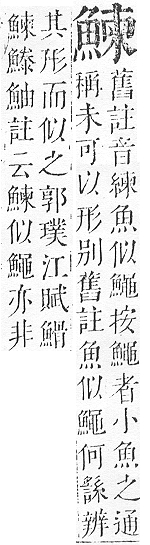 鰊
舊註音練魚似鱦按鱦者小魚之通
稱未可以形別舊註魚似鱦何繇辨
其形而似之郭璞江賦鰼
鰊鰧鮋註云鰊似鱦亦非